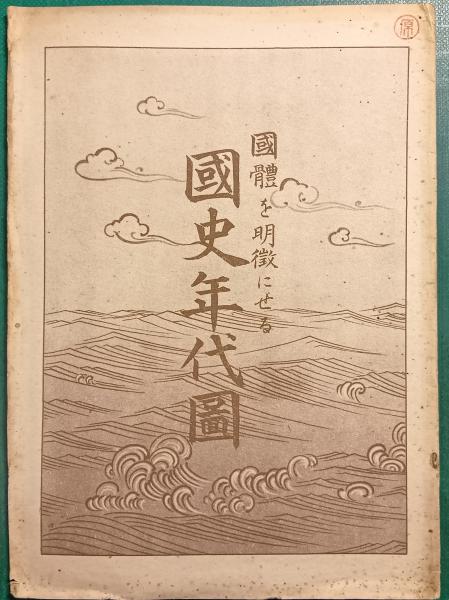 國體を明徴にせる
國史年代圖